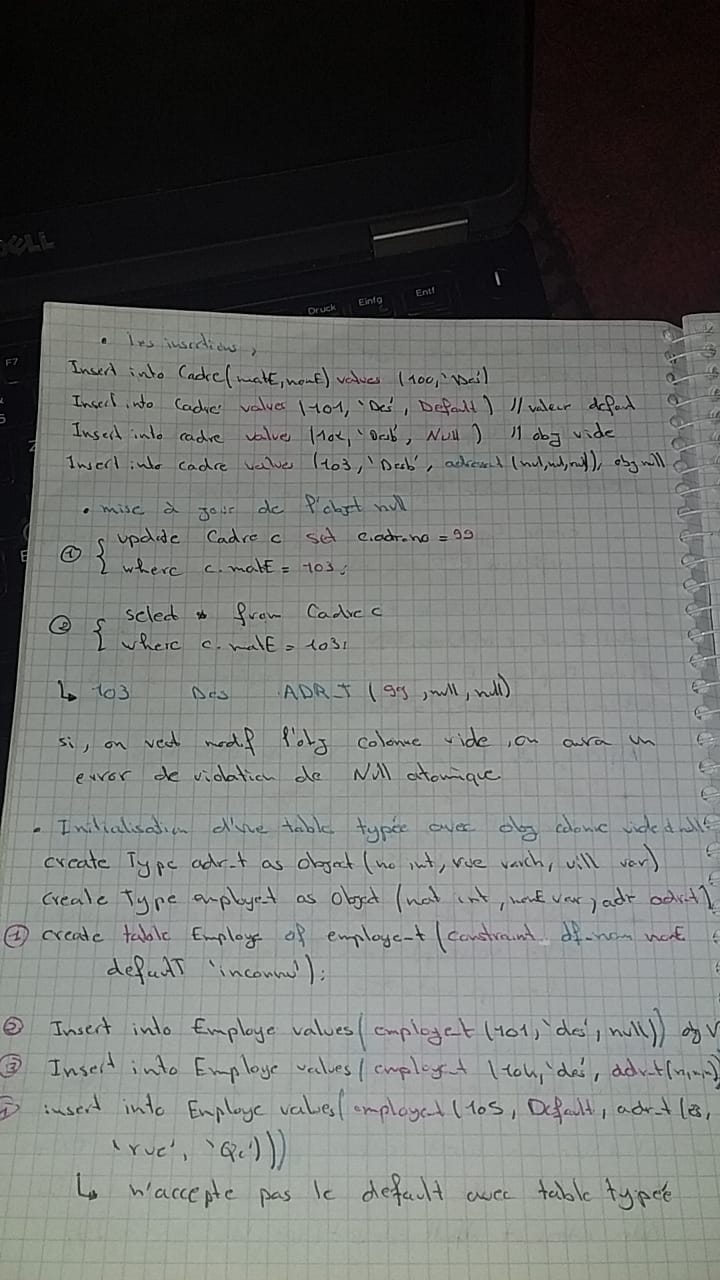 DELL
Druck Einfg Entf
F7
• les insertions,
Insert into Cadre(matE, nomE) values (100, 'Des')
Insert into Cadre values (101, 'Des', Default) // valeur defaut
Insert into cadre value (102, 'Deb', Null) // obj vide
Insert into cadre values (103, 'Desb', adresset (nul, nul, nul)), obj null
• mise à jour de l'objet null
① { update Cadre c set c.adr.no = 99
where c.matE = 103;
② { select * from Cadre c
where c.matE = 103;
↳ 103 Des ADR_T (99, null, null)
si, on veut modif l'obj colonne vide, on aura un
error de violation de Null atomique
• Initialisation d'une table typée avec obj colonne vide + null
create Type adr_t as Object (no int, rue varch, vill var)
create Type employet as Object (nat int, nomE var, adr adr_t)
① create table Employe of employe_t (constraint df-nom nomE
default 'inconnu');
② Insert into Employe values (employet (101, 'des', null)) obj V
③ Insert into Employe values (employe_t (104, 'des', adr_t (n, n, n)
insert into Employe values (employet (105, Default, adr_t (8,
'rue', 'Qc')))
↳ n'accepte pas le default avec table typée